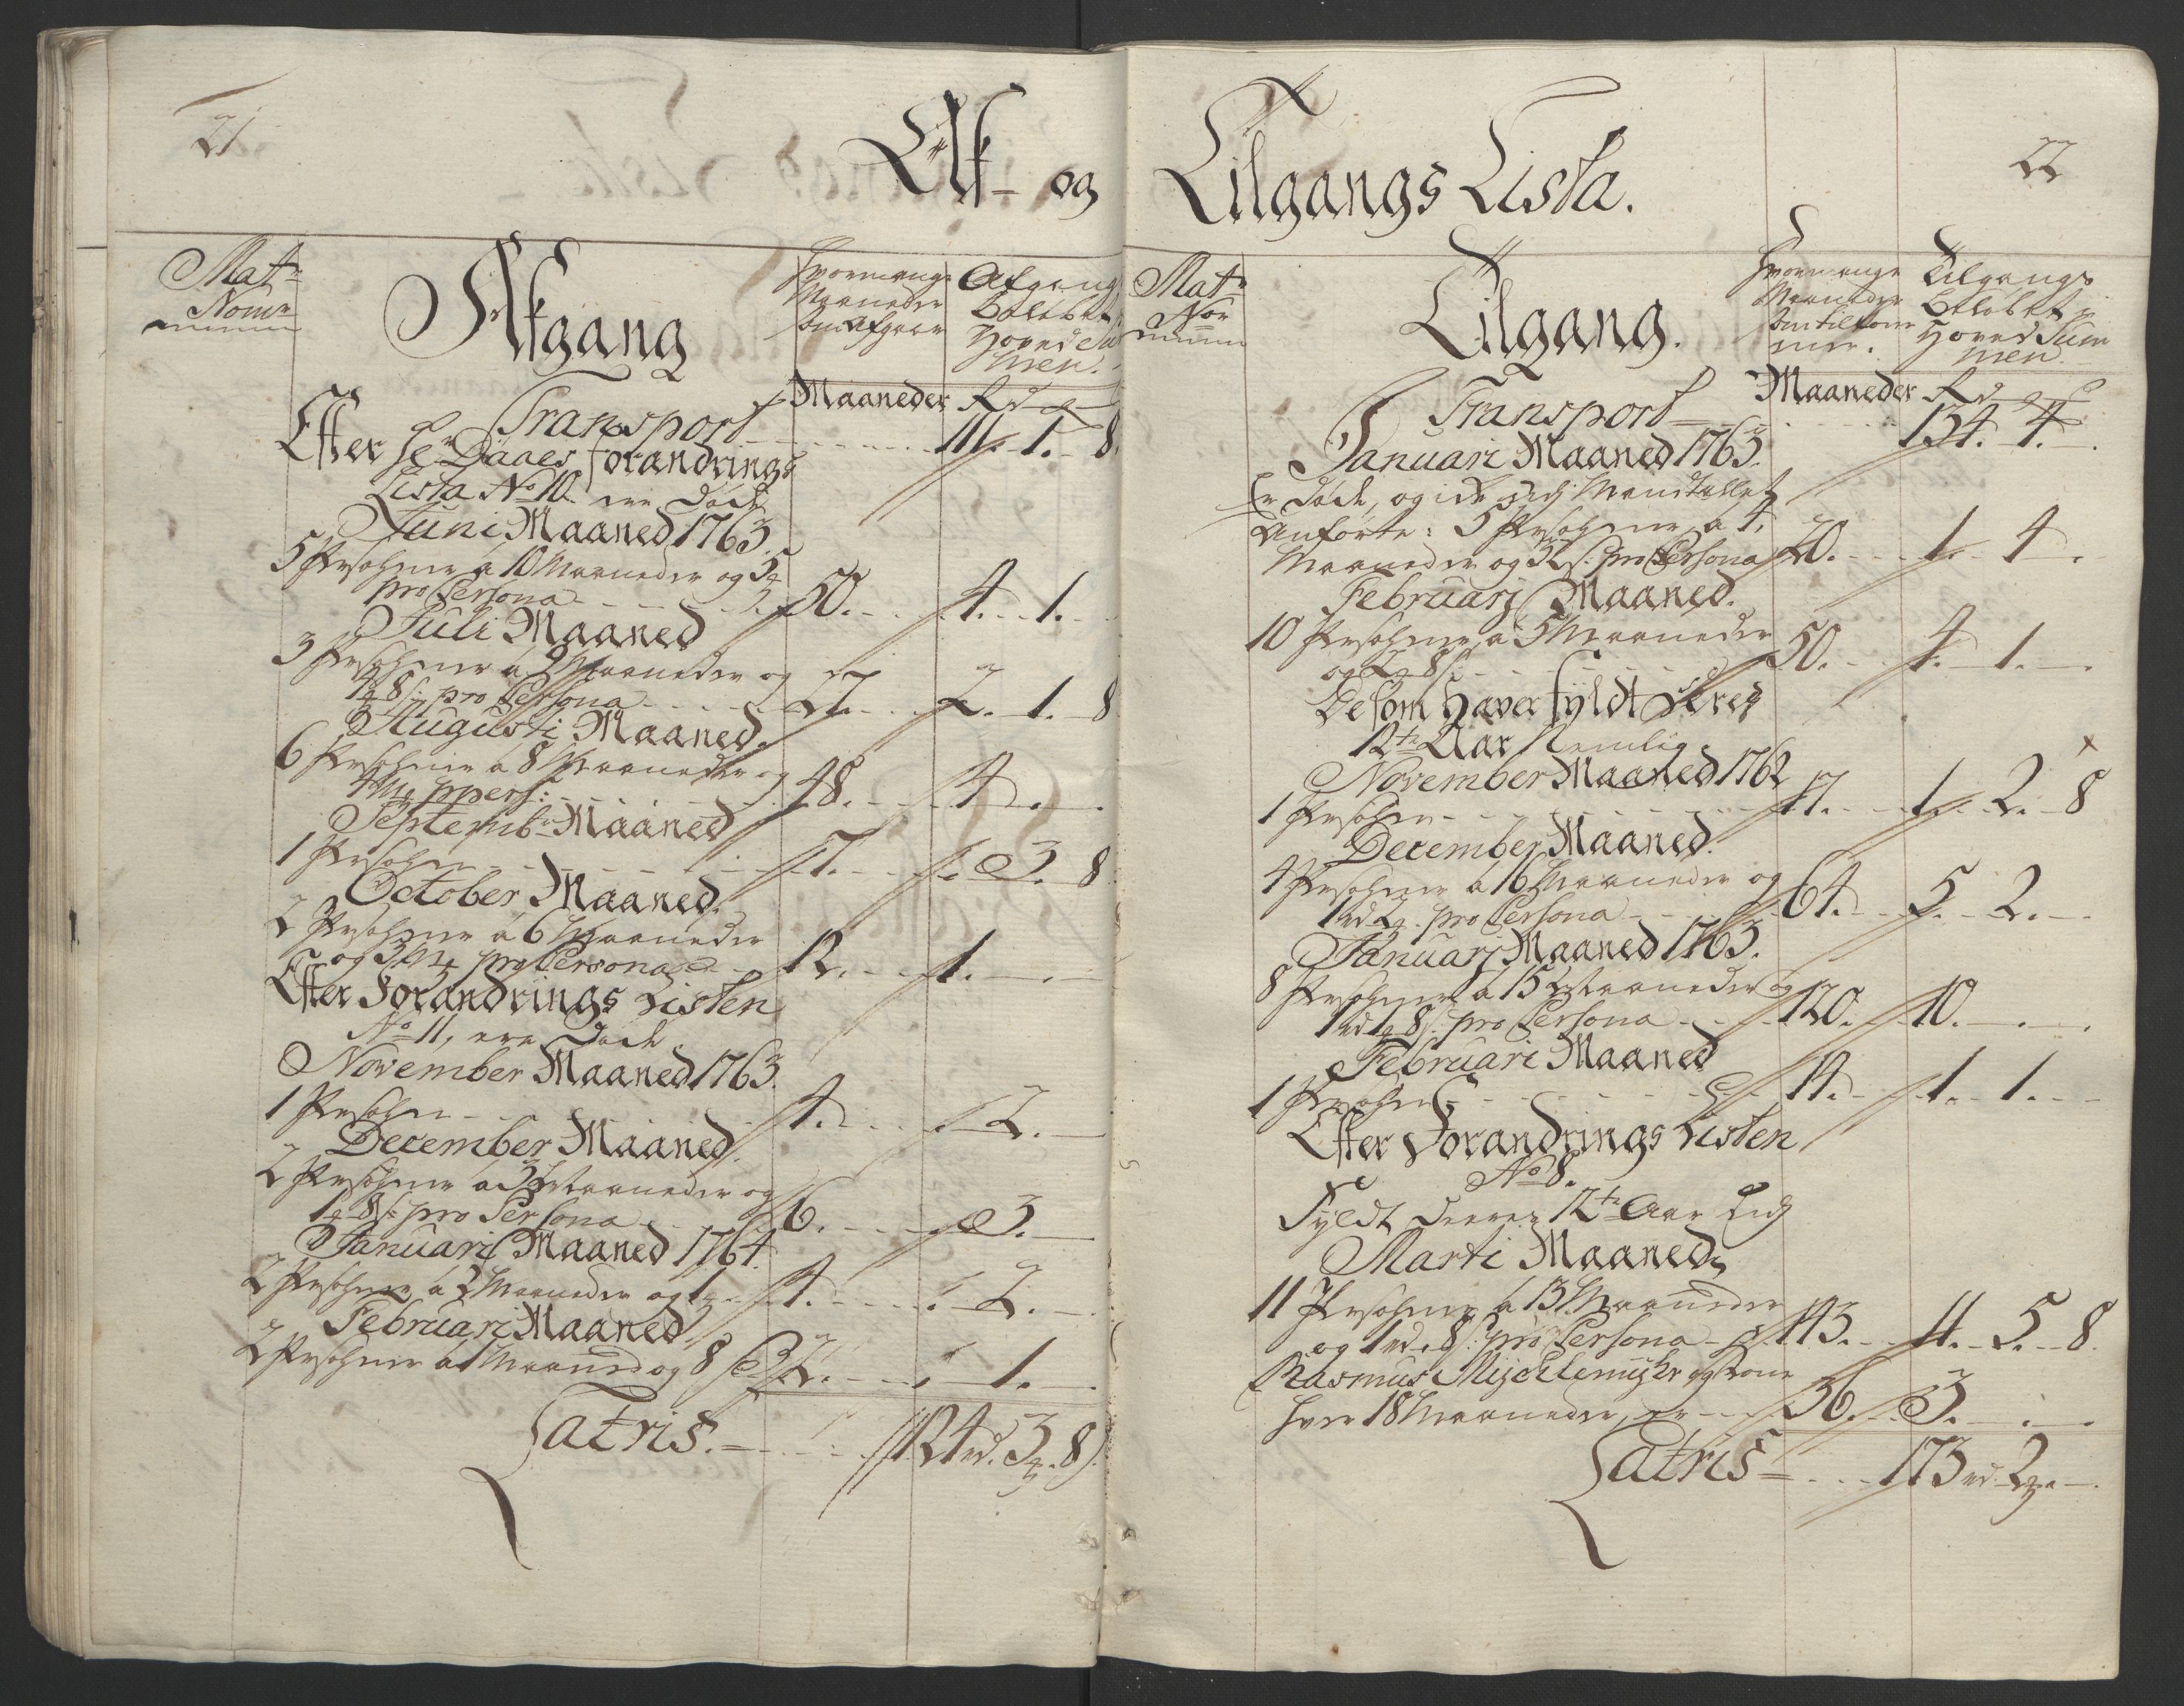 21
Af- og
Matr
Nomr
Afgang
Hvormange
Maaneder
som afgaar
Afgangs
Beløbet i
Hoved Su
men.
Maaneder Rd q
Transport 111. 1. 8.
Efter Hr Daaes forandrings
Lista No 10. ere Døde
Juni Maaned 1763.
5 Persohner a 10 Maaneder og 5q
pro Persona 50. 4. 1.
Juli Maaned
3 Persohner a 9 Maaneder og
4q 8s: pro Persona 27. 2. 1. 8
Augusti Maaned.
6 Persohner a 8 Maaneder og
4 Mk ppers: 48. 4.
Septembr Maaned
1 Persohn 7. 3. 8.
October Maaned.
2 Persohner a 6 Maaneder
og 3 Mk pro Persona 12. 1.
Efter Forandrings Listen
No 11, ere Døde.
November Maaned 1763.
1 Persohn 4. 2.
December Maaned.
2 Persohner a 3 Maaneder og
1q 8s: pro Persona 6. 3.
Januarii Maaned 1764.
2 Persohner a 2 Maaneder og 1q 4. 2.
Februari Maaned
2 Persohner a 1 Maaned og 8 s 2. 1.
Latris. 124rd. 3q. 8s.
22
Tilgangs Lista.
Matr
Nor
Tilgang.
Hvormange
Maaneder
som tilkom
mer.
Tilgangs
Beløbet i
Hoved Sum
men.
Maaneder Rd q s
Transport 134. 4.
Januari Maaned 1763.
Er Døde, og ick udj Mandtallet
Anførte: 5 Persohner, a 4
Maaneder og 32 s: pro Persona 20. 1. 4.
Februarj Maaned.
10 Persohner, a 5 Maaneder
og 2q 8s 50. 4. 1.
De som haver fyldt deres
12te Aar Nemlig
November Maaned 1762
1 Persohn 17. 1. 2. 8
December Maaned.
4 Persohner a 16 Maaneder og
1rd 2q. pro Persona 64. 5. 2.
Januarj Maaned 1763.
8 Persohner a 15 Maaneder og
1rd 1q 8s: pro Persona 120. 10.
Februari Maaned
1 Persohn 14. 1. 1.
Efter Forandrings Listen
No 8.
Fyldt deres 12te Aar udj
Marti Maaned
11 Persohner a 13 Maaneder
og 1rd. 8s: pro Persona 143. 11. 5. 8.
Rasmus og Kone
hver 18 Maaneder, er 36. 3.
Latris 173rd. 2q.